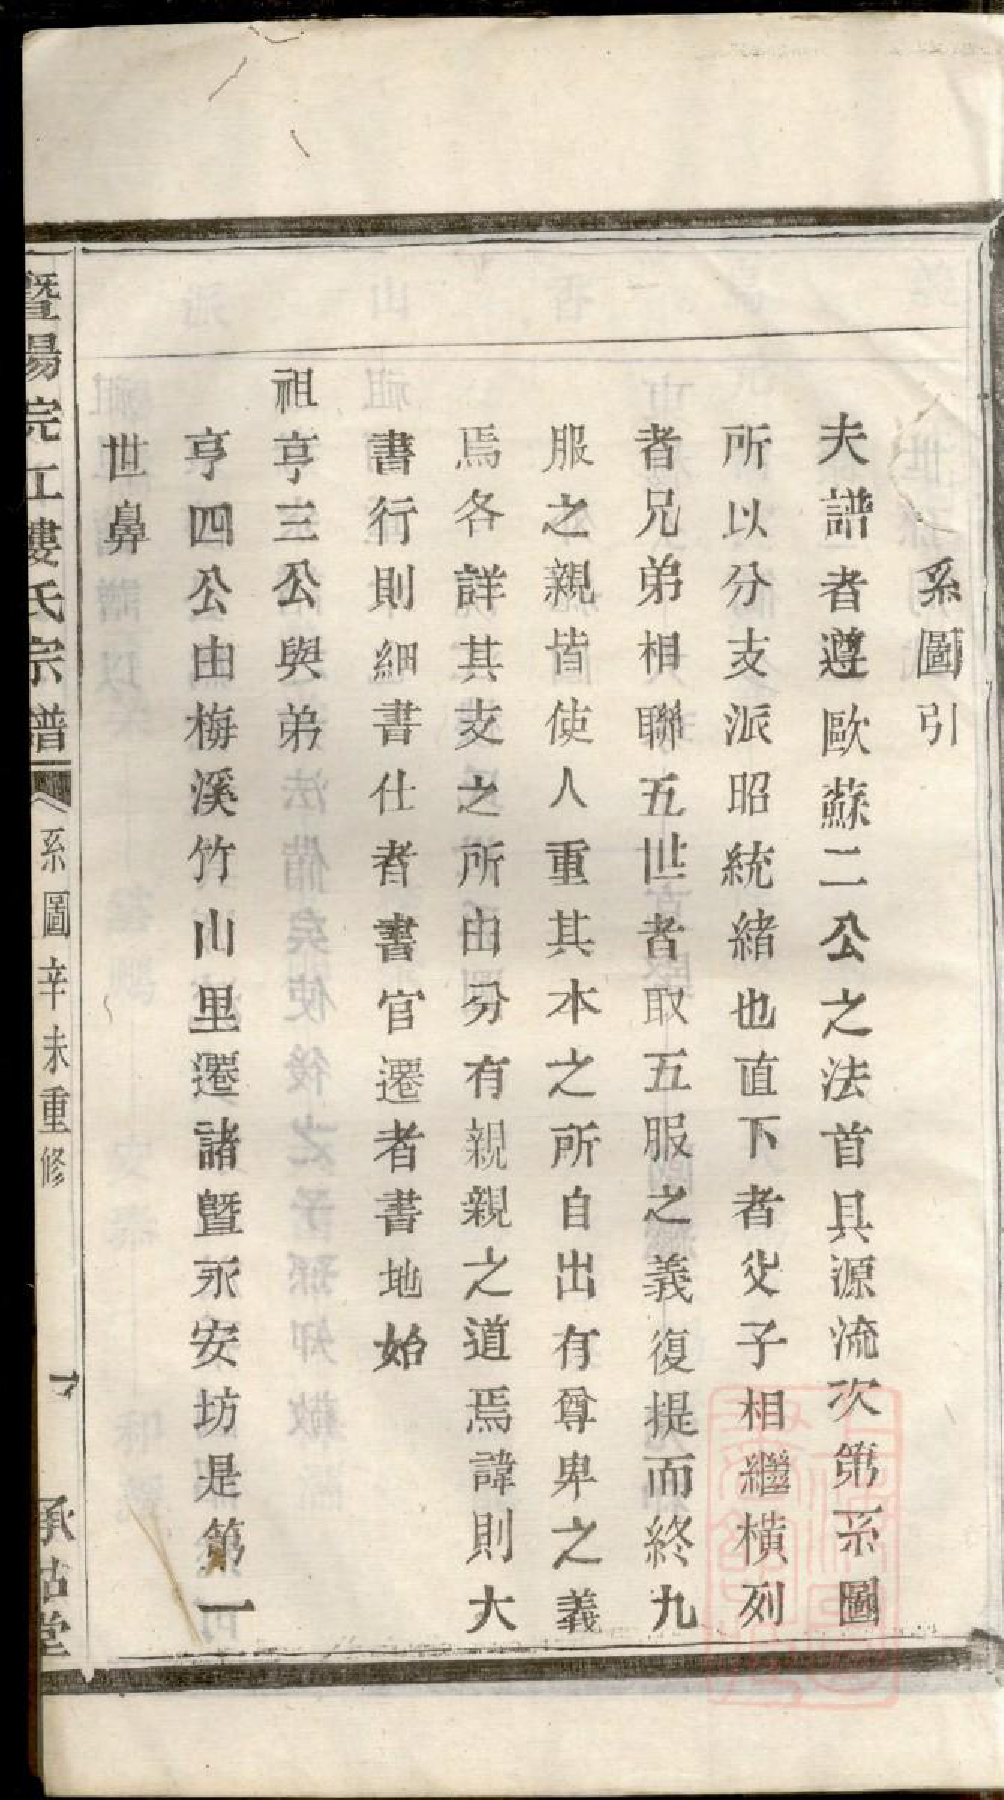 系圖引
夫譜者遵歐蘇二公之法首具源流次第系圖
所以分支派昭統緒也直下者父子相繼橫列
者兄弟相聯五世者取五服之義復提而終九
服之親皆使人重其本之所自出有尊卑之義
焉各詳其支之所由分有親親之道焉諱則大
書行則細書仕者書官遷者書地始
祖亨三公與弟
亨四公由梅溪竹山里遷諸暨永安坊是第一
世鼻
暨陽浣江婁氏宗譜
系圖辛未重修
承祜堂